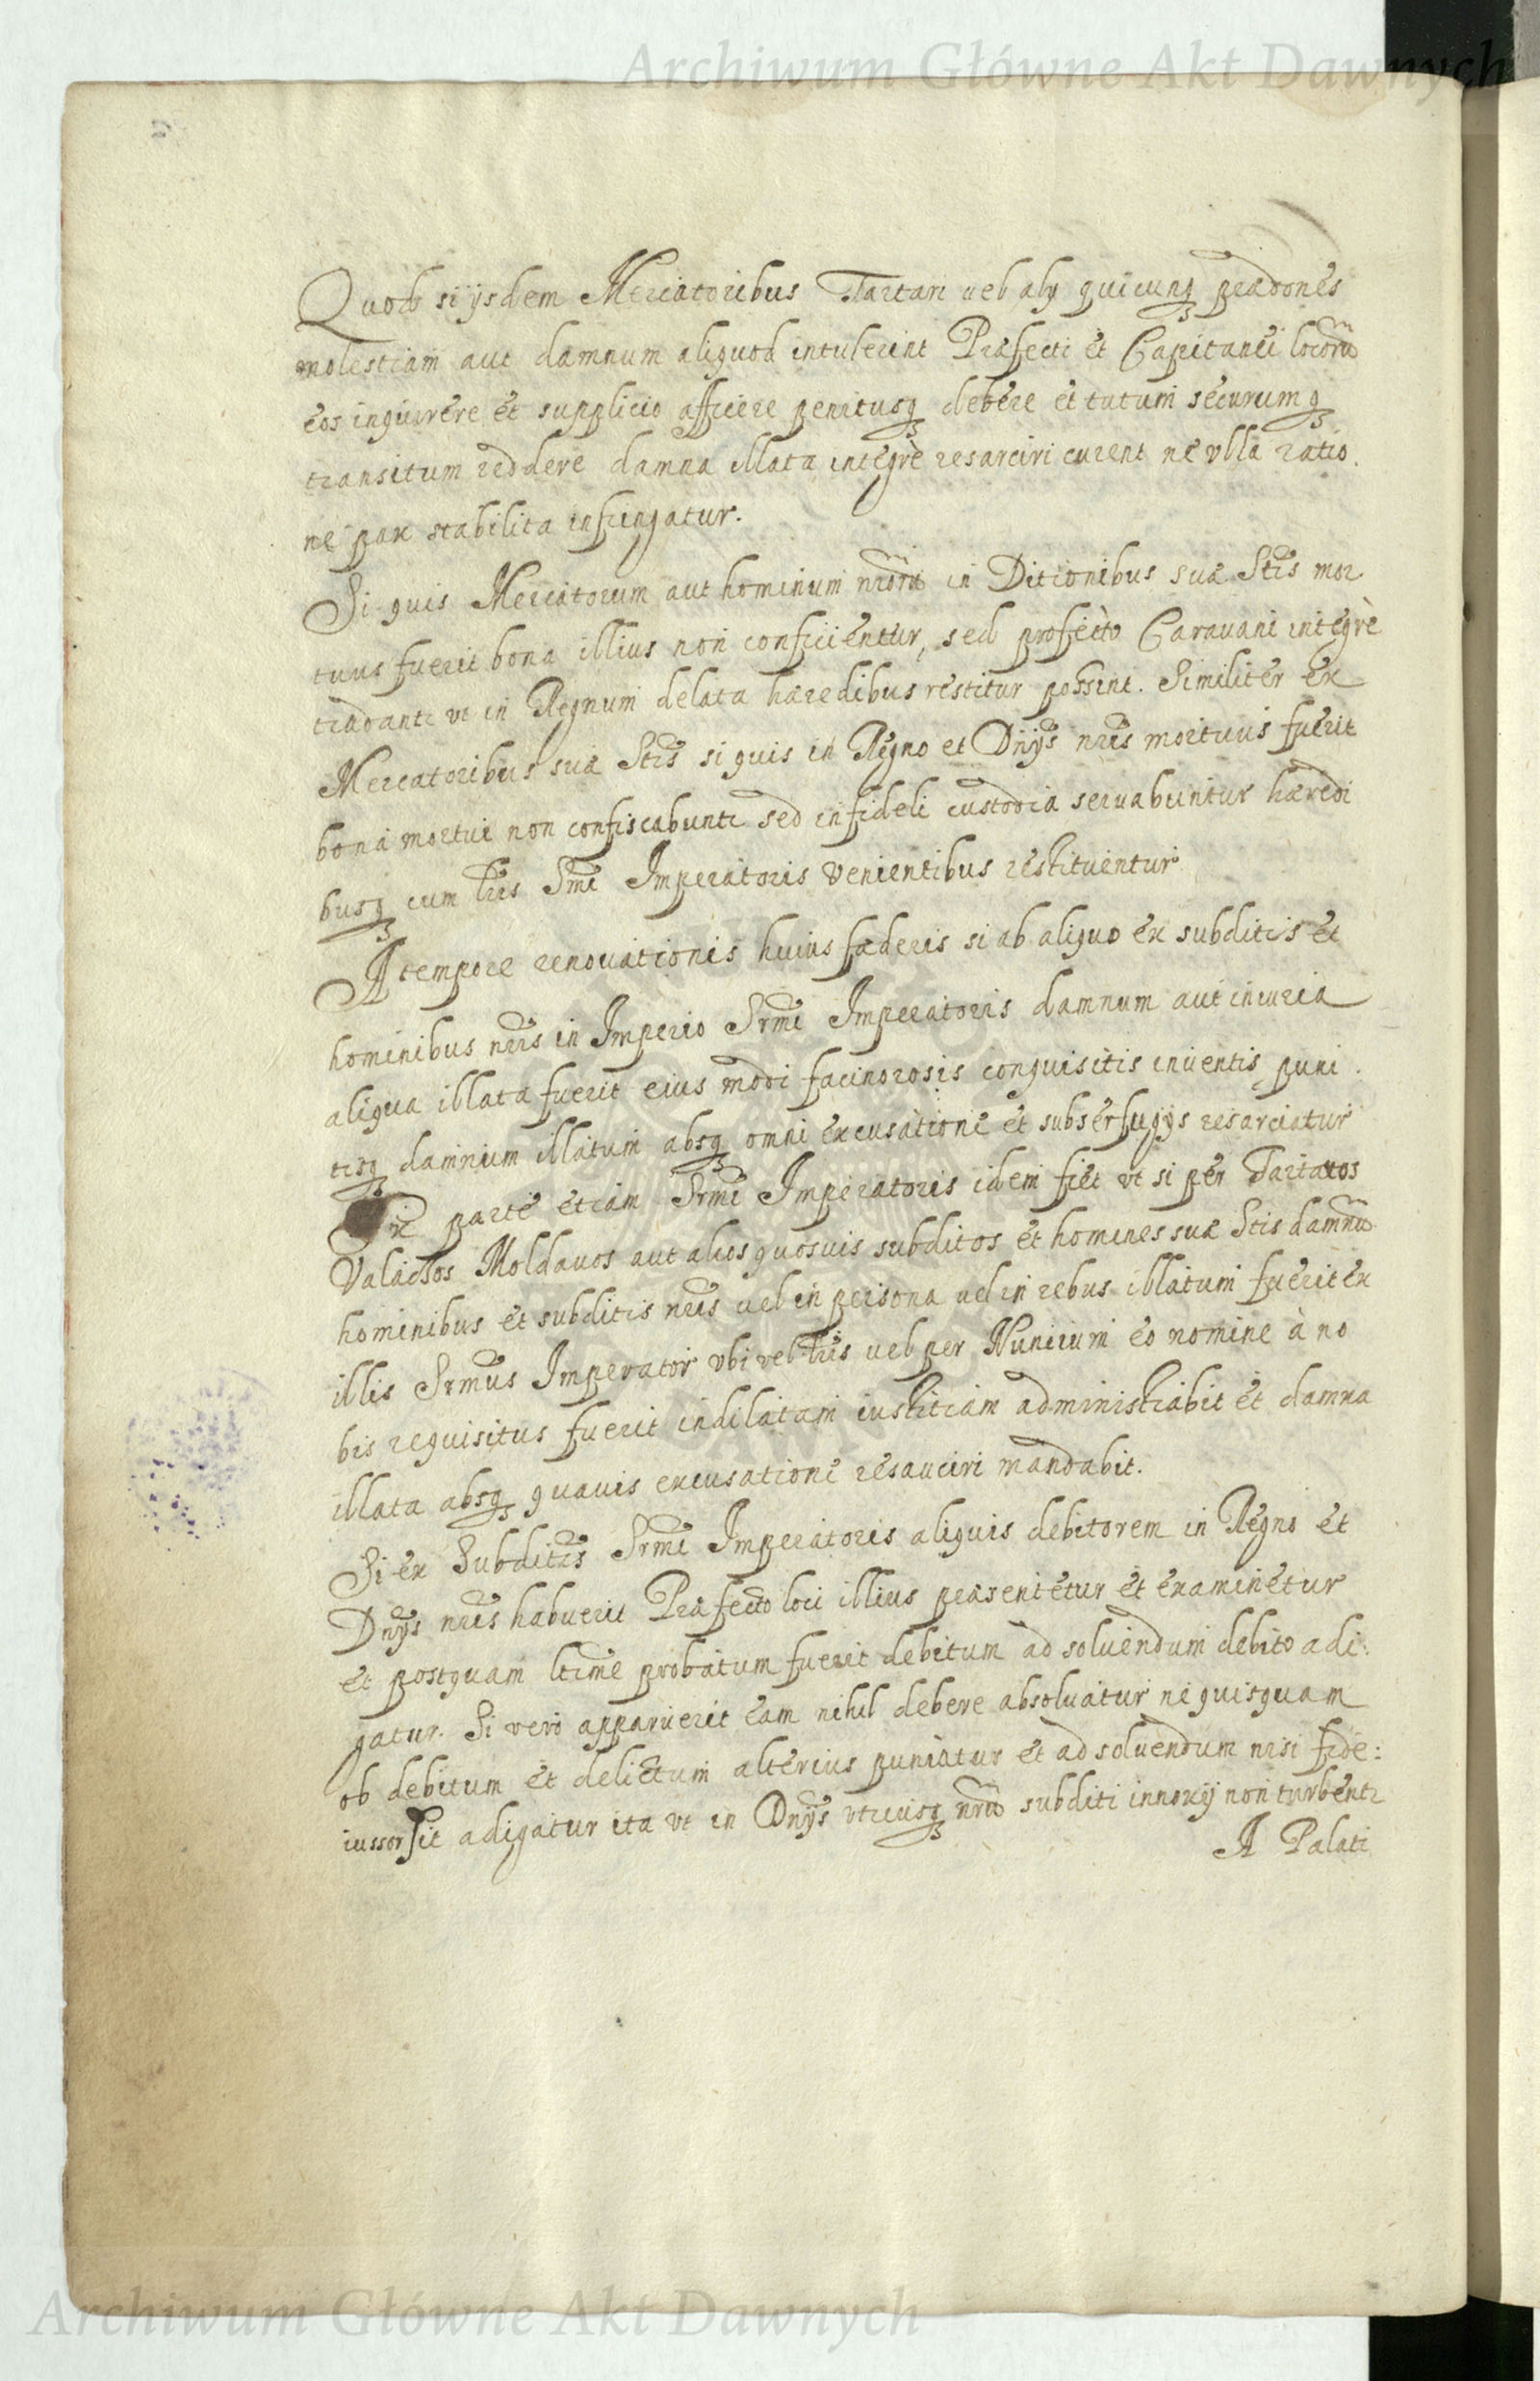 Archiwum Główne Akt Dawnych
Quod si ijsdem Mercatoribus Tartari uel alij quicunq pradones
molestiam aut damnum aliquod intulerint Præfecti et Capitanei locorũ
eos inquirere et supplicio afficere penitusq debere et tutum securumq
transitum reddere damna illata integrè resarciri curent ne vlla ratio.
ne pax stabilita infringatur.
Si quis Mercatorum aut hominum nrorũ in Ditionibus suæ Stis mor
tuus fuerit bona illius non conficientur, sed profecto Carauani integrè
tradantr vt in Regnum delata hæredibus restitur possint. Similiter ex
Mercatoribus suæ Stis si quis in Regno et Dnijs nris mortuus fuerit
bona mortui non confiscabuntr sed in fideli custodia seruabuntur hæredi
busq cum lris Smi Imperatoris venientibus restituentur
A tempore renouationis huius fæderis si ab aliquo ex subditis et
hominibus nris in Imperio Srmi Imperatoris damnum aut iniuria
aliqua illata fuerit eius modi facinorosis conquisitis inuentis puni.
tisq damnum illatum absq omni excusatione et subserfugijs resarciatur
Ex parte etiam Srmi Imperatoris idem fiet vt si per Tartaros
Valachos Moldauos aut alios quosuis subditos et homines suæ Stis damnũ
hominibus et subditis nris uel in persona uel in rebus illatum fuerit ex
illis Srmus Imperator vbi vel lris uel per Nuncium eo nomine à no
bis requisitus fuerit indilatam iustitiam administrabit et damna
illata absq quauis excusatione resauciri mandabit.
Si ex Subditis Srmi Imperatoris aliquis debitorem in Regno et
Dnijs nris habuerit Præfecto loci illius præsentetur et examinetur
et postquam ltime probatum fuerit debitum ad soluendum debito adi.
gatur. Si vero apparuerit eam nihil debere absoluatur ne quisquam
ob debitum et delictum alterius puniatur et ad soluendum nisi fide:
iussor sit adigatur ita vt in Dnijs vtriusq nrũ subditi innoxij non turbentr
A Palati
Archiwum Główne Akt Dawnych